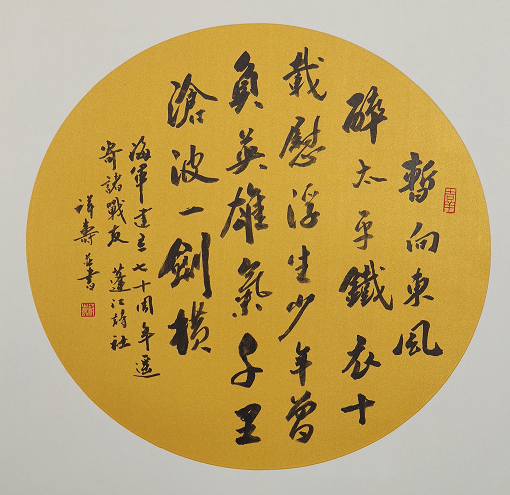 暫向東風
醉太平鐵衣十
載慰浮生少年曾
負英雄氣千里
滄波一劍橫
海軍建立七十周年遙
寄諸戰友 蓬江詩社
祥壽并書